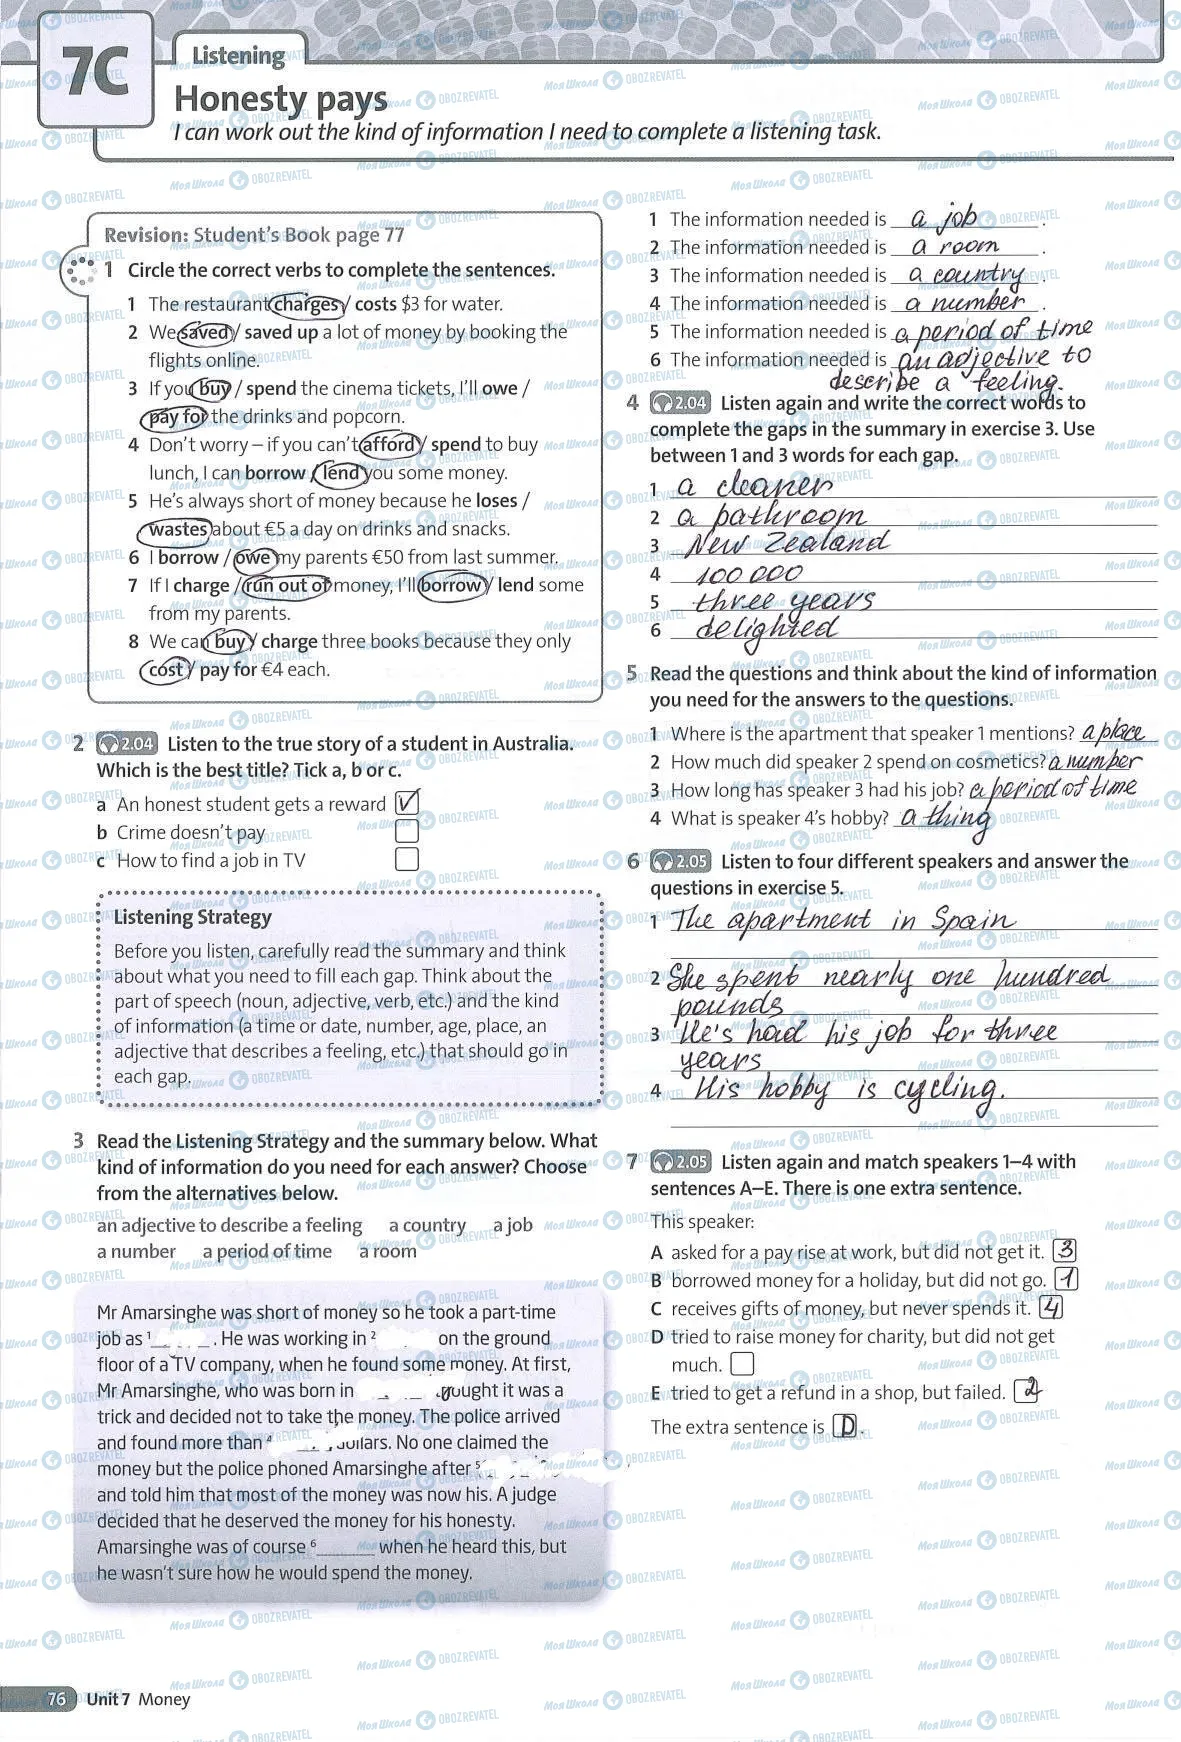 7C
Listening
Honesty pays
I can work out the kind of information I need to complete a listening task.
Revision: Student's Book page 77
1 Circle the correct verbs to complete the sentences.
1 The restaurant charges / costs $3 for water.
2 We saved / saved up a lot of money by booking the
flights online.
3 If you buy / spend the cinema tickets, I'll owe /
pay for the drinks and popcorn.
4 Don't worry – if you can't afford / spend to buy
lunch, I can borrow / lend you some money.
5 He's always short of money because he loses /
wastes about €5 a day on drinks and snacks.
6 I borrow / owe my parents €50 from last summer.
7 If I charge / run out of money, I'll borrow / lend some
from my parents.
8 We can buy / charge three books because they only
cost / pay for €4 each.
2 2.04 Listen to the true story of a student in Australia.
Which is the best title? Tick a, b or c.
a An honest student gets a reward ✓
b Crime doesn't pay
c How to find a job in TV
Listening Strategy
Before you listen, carefully read the summary and think
about what you need to fill each gap. Think about the
part of speech (noun, adjective, verb, etc.) and the kind
of information (a time or date, number, age, place, an
adjective that describes a feeling, etc.) that should go in
each gap.
3 Read the Listening Strategy and the summary below. What
kind of information do you need for each answer? Choose
from the alternatives below.
an adjective to describe a feeling a country a job
a number a period of time a room
Mr Amarsinghe was short of money so he took a part-time
job as 1 . He was working in 2 on the ground
floor of a TV company, when he found some money. At first,
Mr Amarsinghe, who was born in ought it was a
trick and decided not to take the money. The police arrived
and found more than 4 dollars. No one claimed the
money but the police phoned Amarsinghe after 5
and told him that most of the money was now his. A judge
decided that he deserved the money for his honesty.
Amarsinghe was of course 6 ______ when he heard this, but
he wasn't sure how he would spend the money.
1 The information needed is a job .
2 The information needed is a room .
3 The information needed is a country .
4 The information needed is a number .
5 The information needed is a period of time
6 The information needed is an adjective to
describe a feeling.
4 2.04 Listen again and write the correct words to
complete the gaps in the summary in exercise 3. Use
between 1 and 3 words for each gap.
1 a cleaner
2 a bathroom
3 New Zealand
4 100 000
5 three years
6 delighted
5 Read the questions and think about the kind of information
you need for the answers to the questions.
1 Where is the apartment that speaker 1 mentions? a place
2 How much did speaker 2 spend on cosmetics? a number
3 How long has speaker 3 had his job? a period of time
4 What is speaker 4's hobby? a thing
6 2.05 Listen to four different speakers and answer the
questions in exercise 5.
1 The apartment in Spain
2 She spent nearly one hundred
pounds
3 He's had his job for three
years
4 His hobby is cycling.
7 2.05 Listen again and match speakers 1–4 with
sentences A–E. There is one extra sentence.
This speaker:
A asked for a pay rise at work, but did not get it. 3
B borrowed money for a holiday, but did not go. 1
C receives gifts of money, but never spends it. 4
D tried to raise money for charity, but did not get
much.
E tried to get a refund in a shop, but failed. 2
The extra sentence is D .
76 Unit 7 Money
Моя Школа OBOZREVATEL